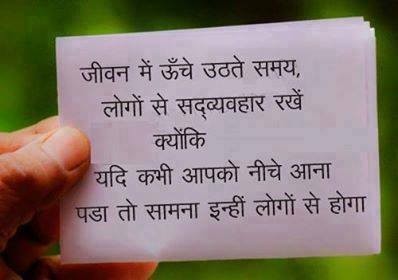 जीवन में ऊँचे उठते समय,
लोगों से सद्‌व्यवहार रखें
क्योंकि
यदि कभी आपको नीचे आना
पडा तो सामना इन्हीं लोगों से होगा